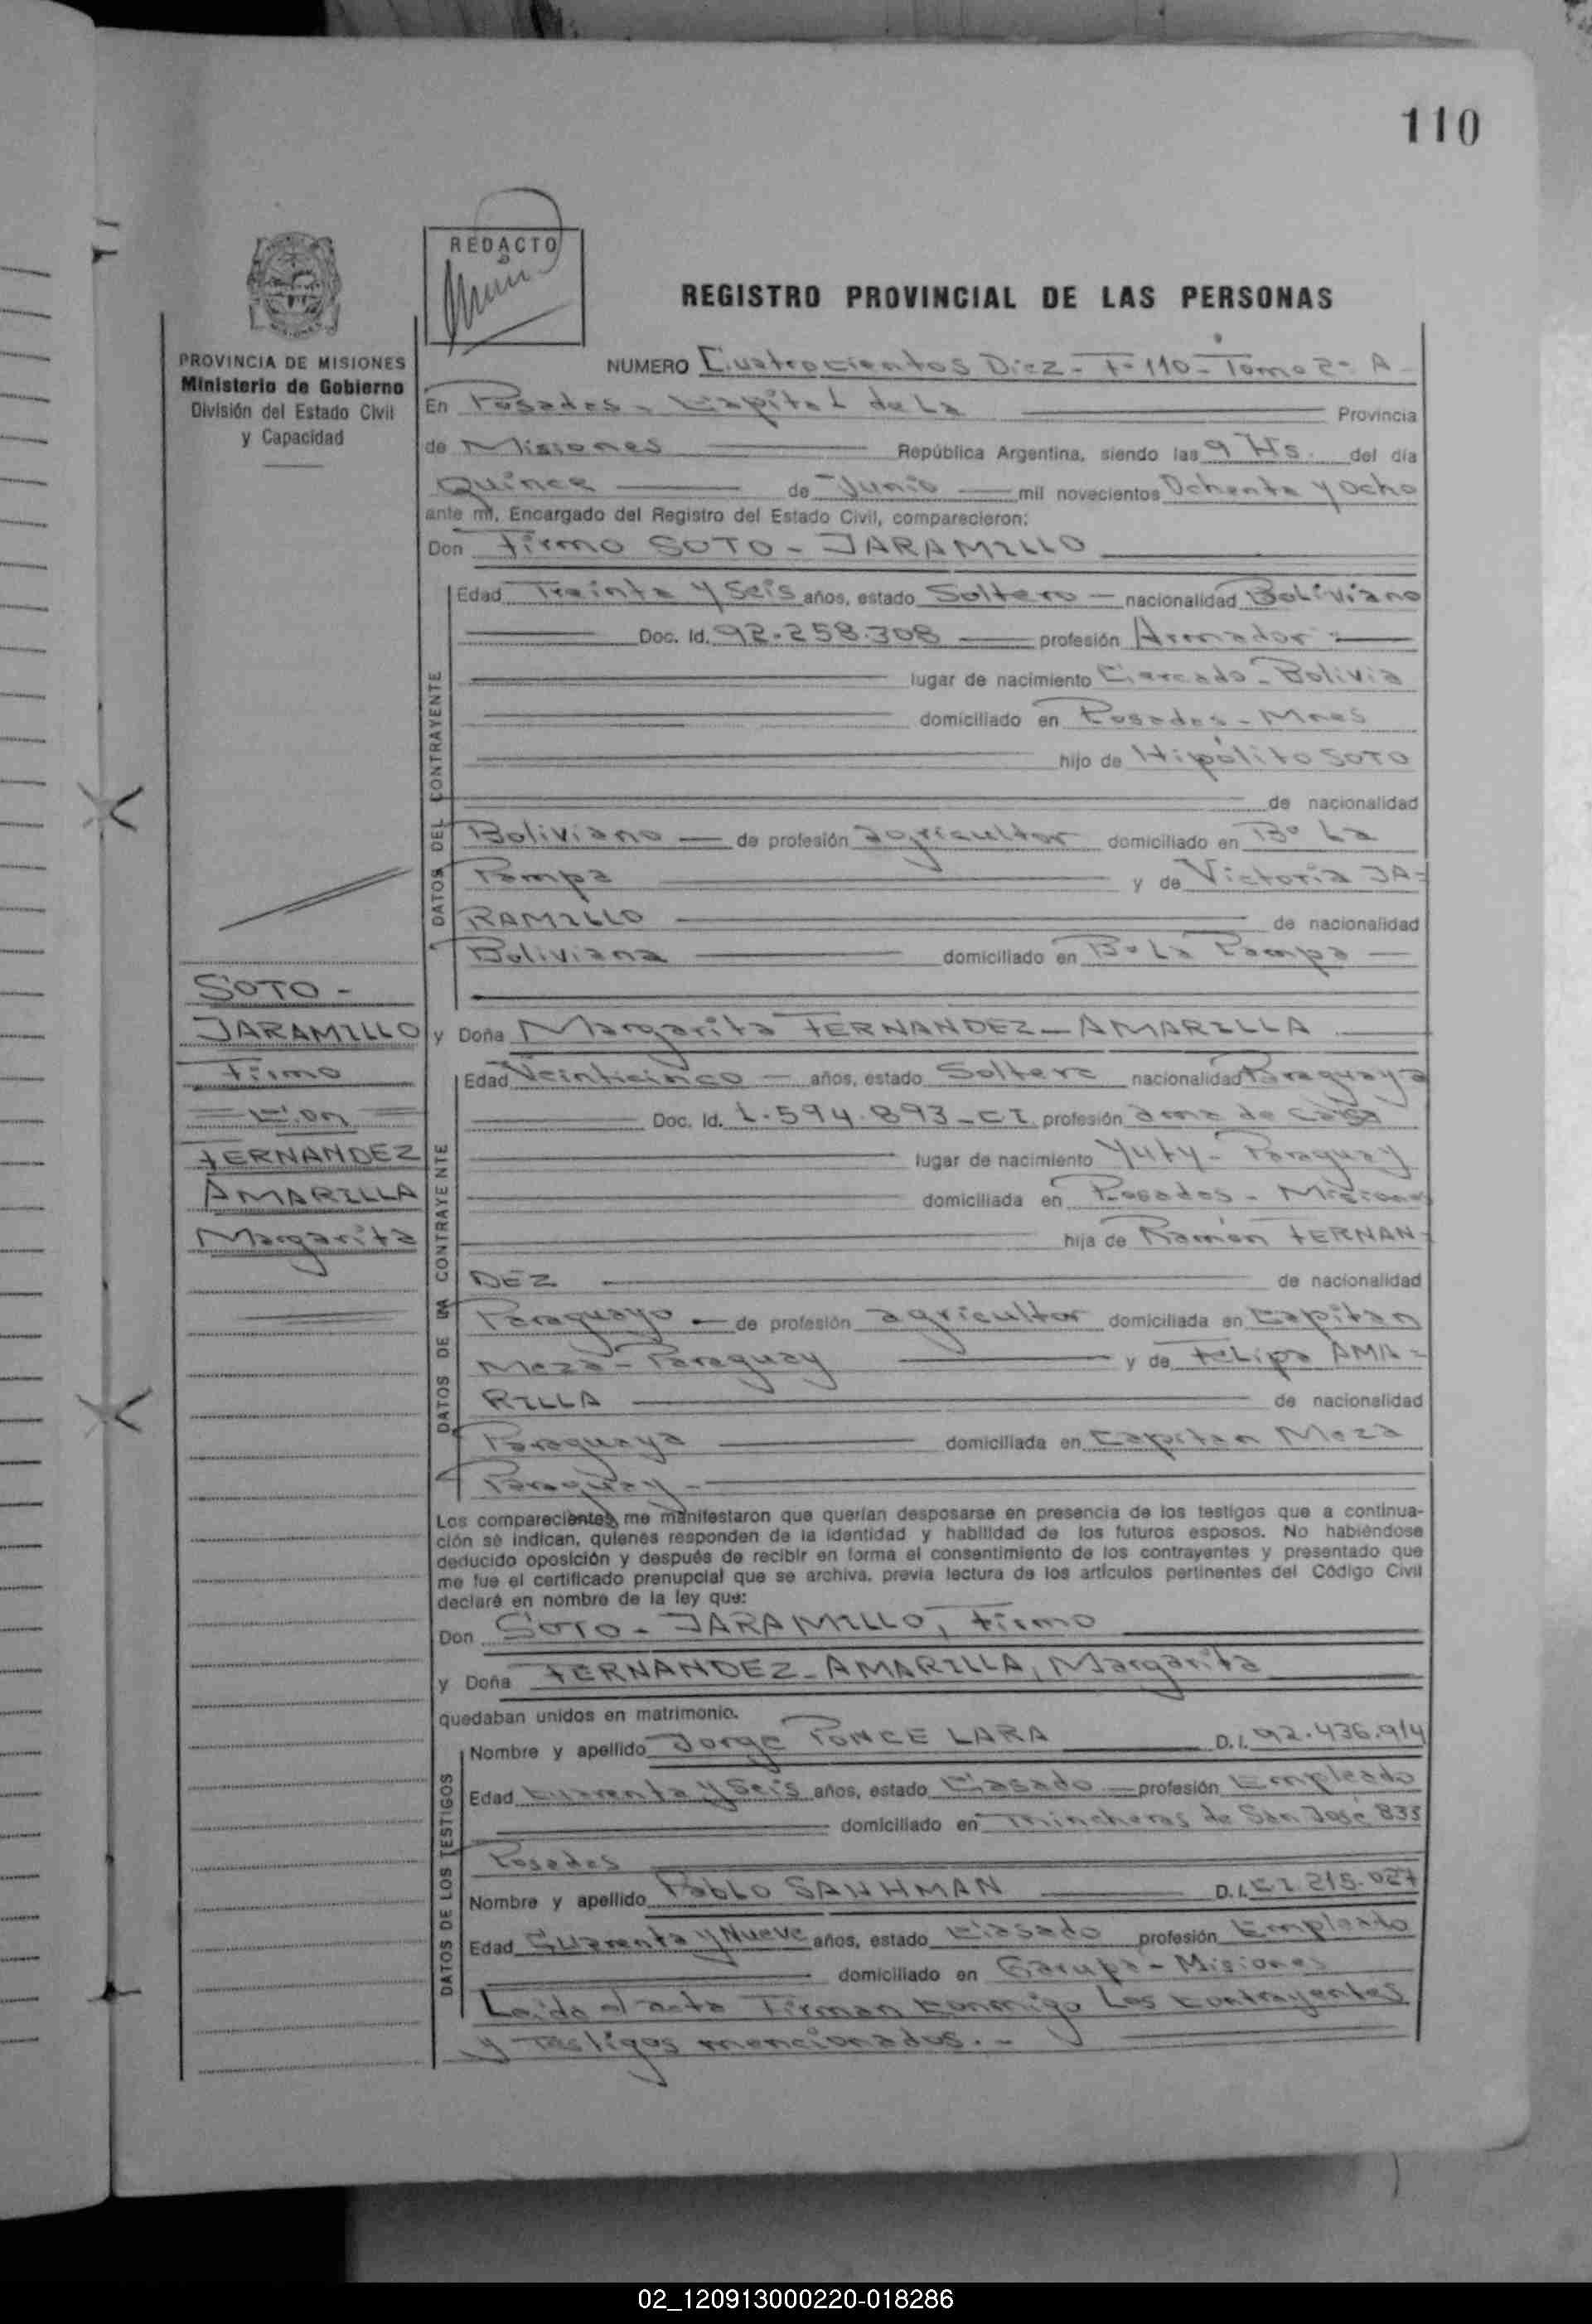 110
REDACTO
REGISTRO PROVINCIAL DE LAS PERSONAS
PROVINCIA DE MISIONES
Ministerio de Gobierno
División del Estado Civil
y Capacidad
NUMERO Cuatrocientos Diez - F° 110 - Tomo 2° A -
En Posadas - Capital de La Provincia
de Misiones República Argentina, siendo las 9 Hs. del día
Quince de Junio mil novecientos Ochenta y Ocho
ante mí, Encargado del Registro del Estado Civil, comparecieron:
Don Firmo SOTO - JARAMILLO
DATOS DEL CONTRAYENTE
Edad Treinta y Seis años, estado Soltero - nacionalidad Boliviano
Doc. Id. 92.258.308 profesión Armador -
lugar de nacimiento Cercado - Bolivia
domiciliado en Posadas - Mnes
hijo de Hipólito SOTO
de nacionalidad
Boliviano - de profesión agricultor domiciliado en B° La
Pampa y de Victoria JA=
RAMILLO de nacionalidad
Boliviana domiciliado en B° La Pampa -
SOTO -
JARAMILLO
Firmo
= Con =
FERNANDEZ
AMARILLA
Margarita
y Doña Margarita FERNANDEZ - AMARILLA
DATOS DE LA CONTRAYENTE
Edad Veinticinco - años, estado Soltera nacionalidad Paraguaya
Doc. Id. 1.594.893 - CI profesión ama de casa
lugar de nacimiento Yuty - Paraguay
domiciliada en Posadas - Misiones
hija de Ramón FERNAN=
DEZ de nacionalidad
Paraguayo - de profesión agricultor domiciliada en Capitan
Meza - Paraguay y de Felipa AMA=
RILLA de nacionalidad
Paraguaya domiciliada en Capitan Meza
Paraguay -
Los comparecientes me manifestaron que querían desposarse en presencia de los testigos que a continua-
ción se indican, quienes responden de la identidad y habilidad de los futuros esposos. No habiéndose
deducido oposición y después de recibir en forma el consentimiento de los contrayentes y presentado que
me fue el certificado prenupcial que se archiva, previa lectura de los artículos pertinentes del Código Civil
declaré en nombre de la ley que:
Don SOTO - JARAMILLO, Firmo
y Doña FERNANDEZ - AMARILLA, Margarita
quedaban unidos en matrimonio.
DATOS DE LOS TESTIGOS
Nombre y apellido Jorge PONCE LARA D.I. 92.436.914
Edad Cuarenta y Seis años, estado Casado - profesión Empleado
domiciliado en Trincheras de San José 835
Posadas
Nombre y apellido Pablo D.I. CI. 215.027
Edad Cuarenta y Nueve años, estado Casado profesión Empleado
domiciliado en Garupá - Misiones
Leida el acta Firman conmigo Los contrayentes
y Testigos mencionados. -
02_120913000220-018286